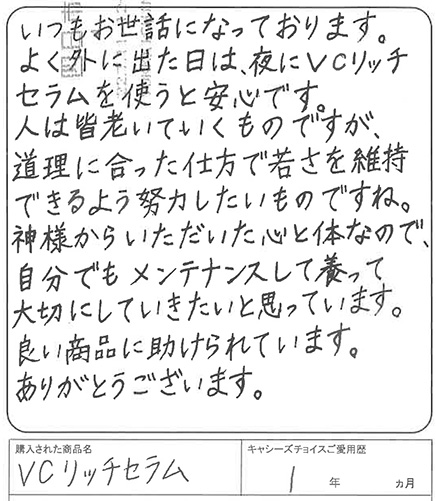 いつもお世話になっております。
よく外に出た日は、夜にVCリッチ
セラムを使うと安心です。
人は皆老いていくものですが、
道理に合った仕方で若さを維持
できるよう努力したいものですね。
神様からいただいた心と体なので、
自分でもメンテナンスして養って
大切にしていきたいと思っています。
良い商品に助けられています。
ありがとうございます。
購入された商品名
キャシーズチョイスご愛用歴
VCリッチセラム
1年 ヵ月